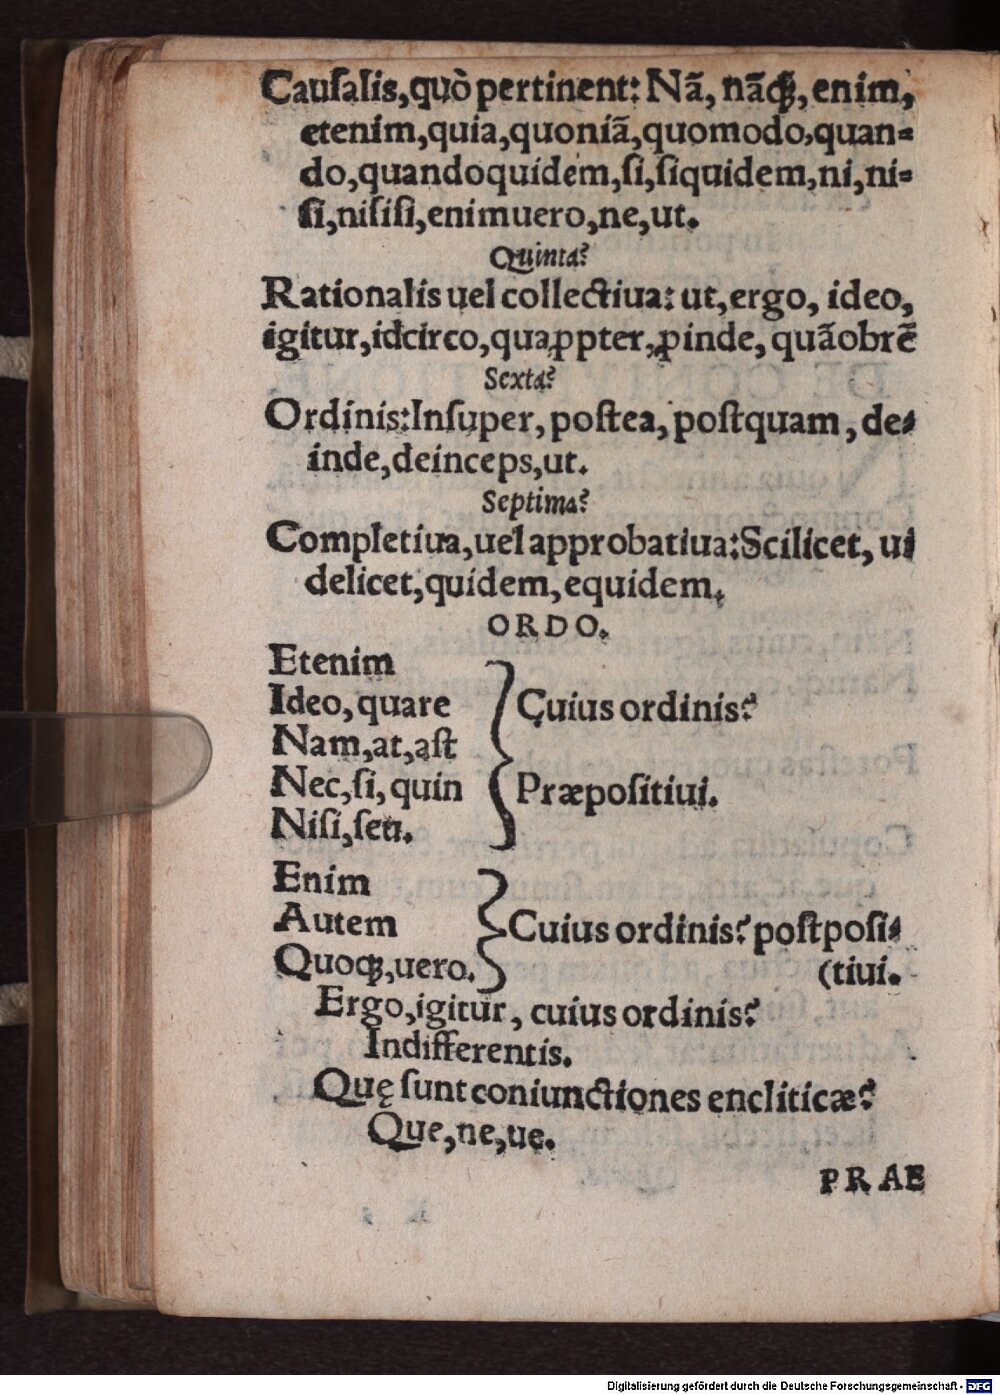 Cauſalis,quò pertinent: Nã, nãq́ꝫ, enim,
etenim,quia,quoniã,quomodo,quan-
do,quandoquidem,ſi,ſiquidem,ni,ni-
ſi,niſiſi,enimuero,ne,ut.
Quinta?
Rationalis uel collectiua: ut,ergo, ideo,
igitur,idcirco,quaꝓpter,ꝓinde, quãobrẽ
Sexta?
Ordinis:Inſuper, poſtea, poſtquam, de-
inde,deinceps,ut.
Septima?
Completiua,uel approbatiua:Scilicet, ui
delicet,quidem,equidem.
ORDO.
Etenim
Ideo,quare
Nam,at,aſt
Nec,ſi,quin
Niſi,ſeu.
Cuius ordinis?
Præpoſitiui.
Enim
Autem
Quoqꝫ,uero.
Cuius ordinis? poſtpoſi-
(tiui.
Ergo,igitur, cuius ordinis?
Indifferentis.
Quę ſunt coniunctiones encliticæ?
Que,ne,ue.
PRAE
Digitalisierung gefördert durch die Deutsche Forschungsgemeinschaft - DFG